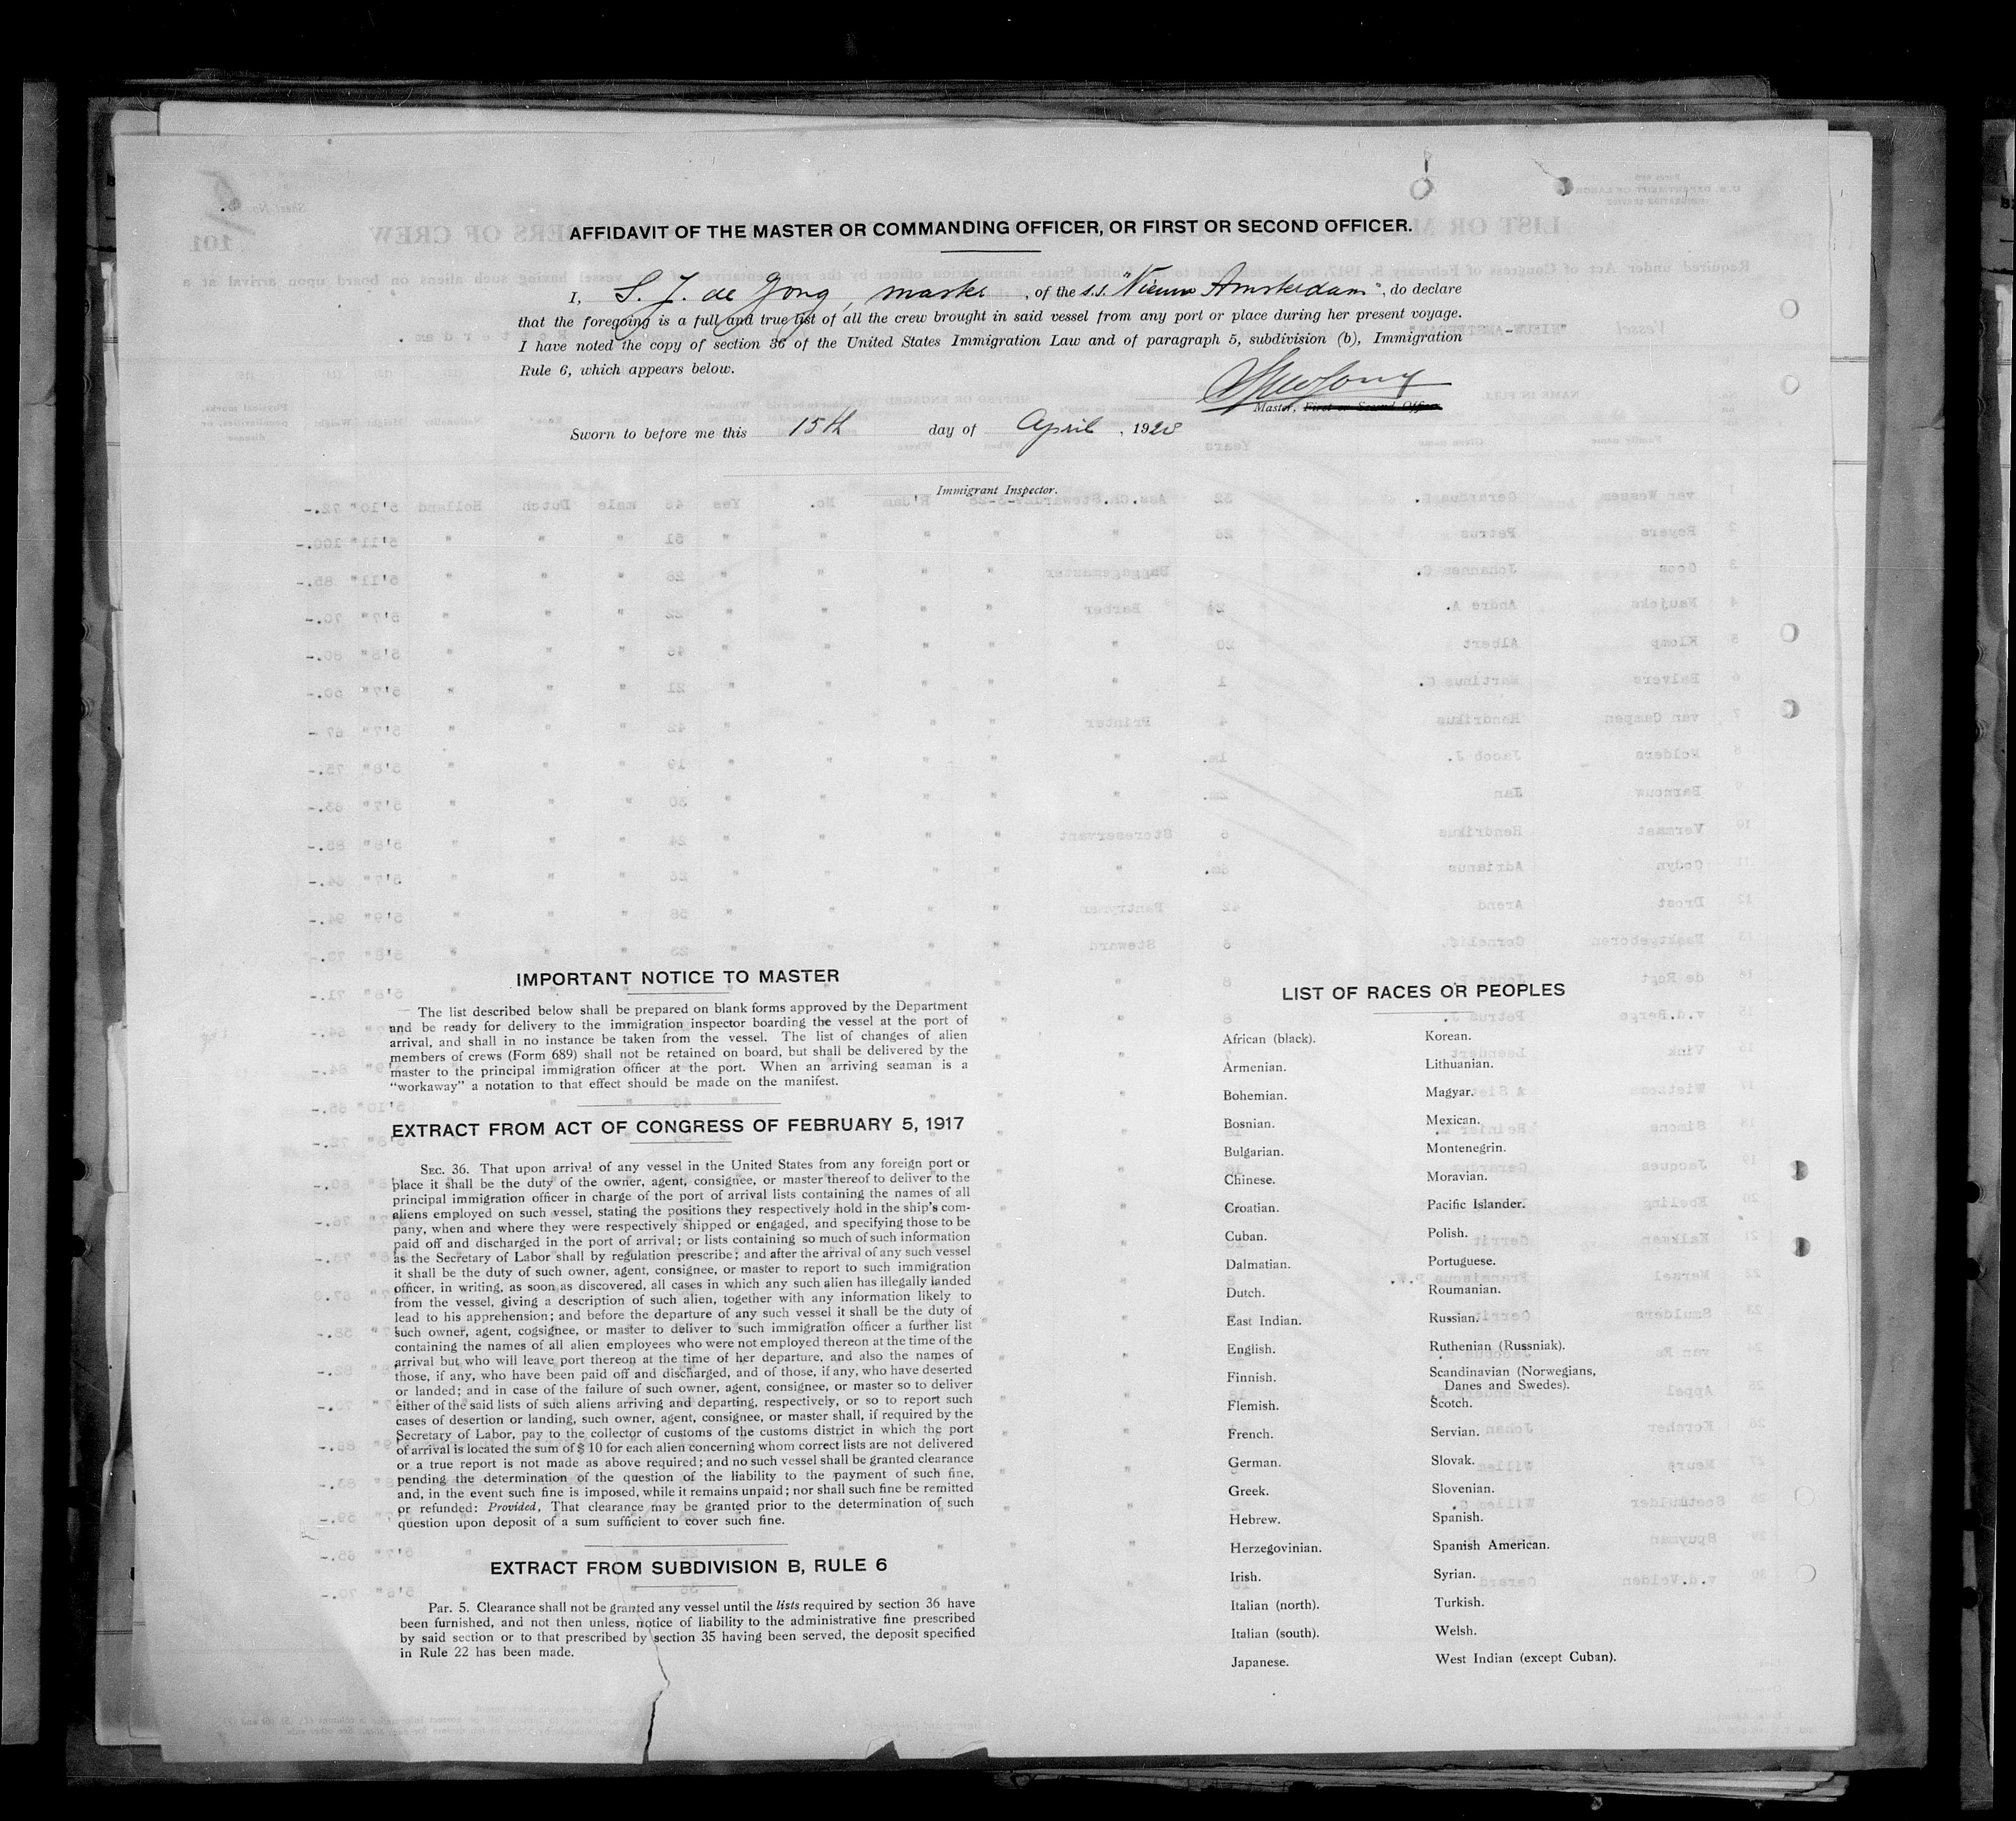 AFFIDAVIT OF THE MASTER OR COMMANDING OFFICER, OR FIRST OR SECOND OFFICER.
I, S. J. de Jong, master, of the s.s. "Nieuw Amsterdam", do declare
that the foregoing is a full and true list of all the crew brought in said vessel from any port or place during her present voyage.
I have noted the copy of section 36 of the United States Immigration Law and of paragraph 5, subdivision (b), Immigration
Rule 6, which appears below.
Master, First or Second Officer.
Sworn to before me this 15th day of April, 192
Immigrant Inspector.
IMPORTANT NOTICE TO MASTER
The list described below shall be prepared on blank forms approved by the Department
and be ready for delivery to the immigration inspector boarding the vessel at the port of
arrival, and shall in no instance be taken from the vessel. The list of changes of alien
members of crews (Form 689) shall not be retained on board, but shall be delivered by the
master to the principal immigration officer at the port. When an arriving seaman is a
"workaway" a notation to that effect should be made on the manifest.
EXTRACT FROM ACT OF CONGRESS OF FEBRUARY 5, 1917
SEC. 36. That upon arrival of any vessel in the United States from any foreign port or
place it shall be the duty of the owner, agent, consignee, or master thereof to deliver to the
principal immigration officer in charge of the port of arrival lists containing the names of all
aliens employed on such vessel, stating the positions they respectively hold in the ship's com-
pany, when and where they were respectively shipped or engaged, and specifying those to be
paid off and discharged in the port of arrival; or lists containing so much of such information
as the Secretary of Labor shall by regulation prescribe; and after the arrival of any such vessel
it shall be the duty of such owner, agent, consignee, or master to report to such immigration
officer, in writing, as soon as discovered, all cases in which any such alien has illegally landed
from the vessel, giving a description of such alien, together with any information likely to
lead to his apprehension; and before the departure of any such vessel it shall be the duty of
such owner, agent, cogsignee, or master to deliver to such immigration officer a further list
containing the names of all alien employees who were not employed thereon at the time of the
arrival but who will leave port thereon at the time of her departure, and also the names of
those, if any, who have been paid off and discharged, and of those, if any, who have deserted
or landed; and in case of the failure of such owner, agent, consignee, or master so to deliver
either of the said lists of such aliens arriving and departing, respectively, or so to report such
cases of desertion or landing, such owner, agent, consignee, or master shall, if required by the
Secretary of Labor, pay to the collector of customs of the customs district in which the port
of arrival is located the sum of $ 10 for each alien concerning whom correct lists are not delivered
or a true report is not made as above required; and no such vessel shall be granted clearance
pending the determination of the question of the liability to the payment of such fine,
and, in the event such fine is imposed, while it remains unpaid; nor shall such fine be remitted
or refunded: Provided, That clearance may be granted prior to the determination of such
question upon deposit of a sum sufficient to cover such fine.
EXTRACT FROM SUBDIVISION B, RULE 6
Par. 5. Clearance shall not be granted any vessel until the lists required by section 36 have
been furnished, and not then unless, notice of liability to the administrative fine prescribed
by said section or to that prescribed by section 35 having been served, the deposit specified
in Rule 22 has been made.
LIST OF RACES OR PEOPLES
African (black).
Armenian.
Bohemian.
Bosnian.
Bulgarian.
Chinese.
Croatian.
Cuban.
Dalmatian.
Dutch.
East Indian.
English.
Finnish.
Flemish.
French.
German.
Greek.
Hebrew.
Herzegovinian.
Irish.
Italian (north).
Italian (south).
Japanese.
Korean.
Lithuanian.
Magyar.
Mexican.
Montenegrin.
Moravian.
Pacific Islander.
Polish.
Portuguese.
Roumanian.
Russian.
Ruthenian (Russniak).
Scandinavian (Norwegians,
Danes and Swedes).
Scotch.
Servian.
Slovak.
Slovenian.
Spanish.
Spanish American.
Syrian.
Turkish.
Welsh.
West Indian (except Cuban).